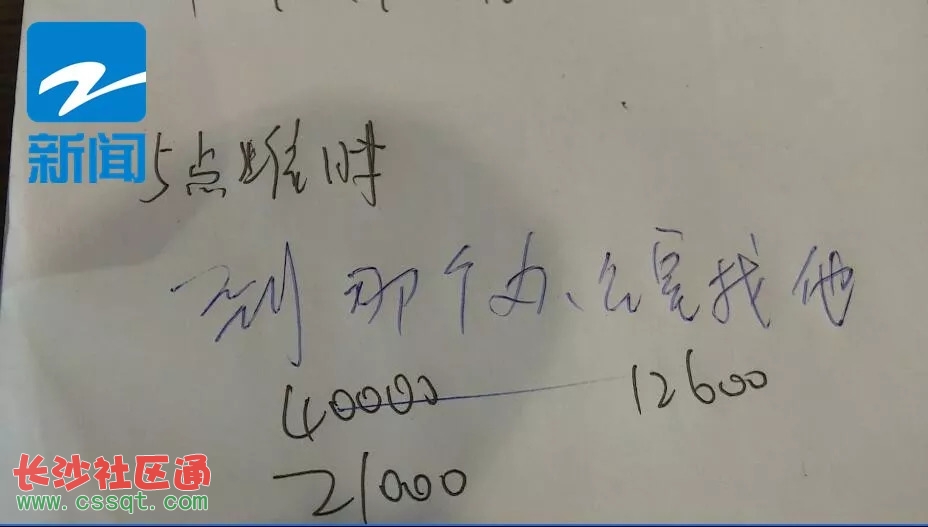 新闻
5点时
到那个办公室找他
40000 12600
21000
长沙社区通
www.cssqt.com